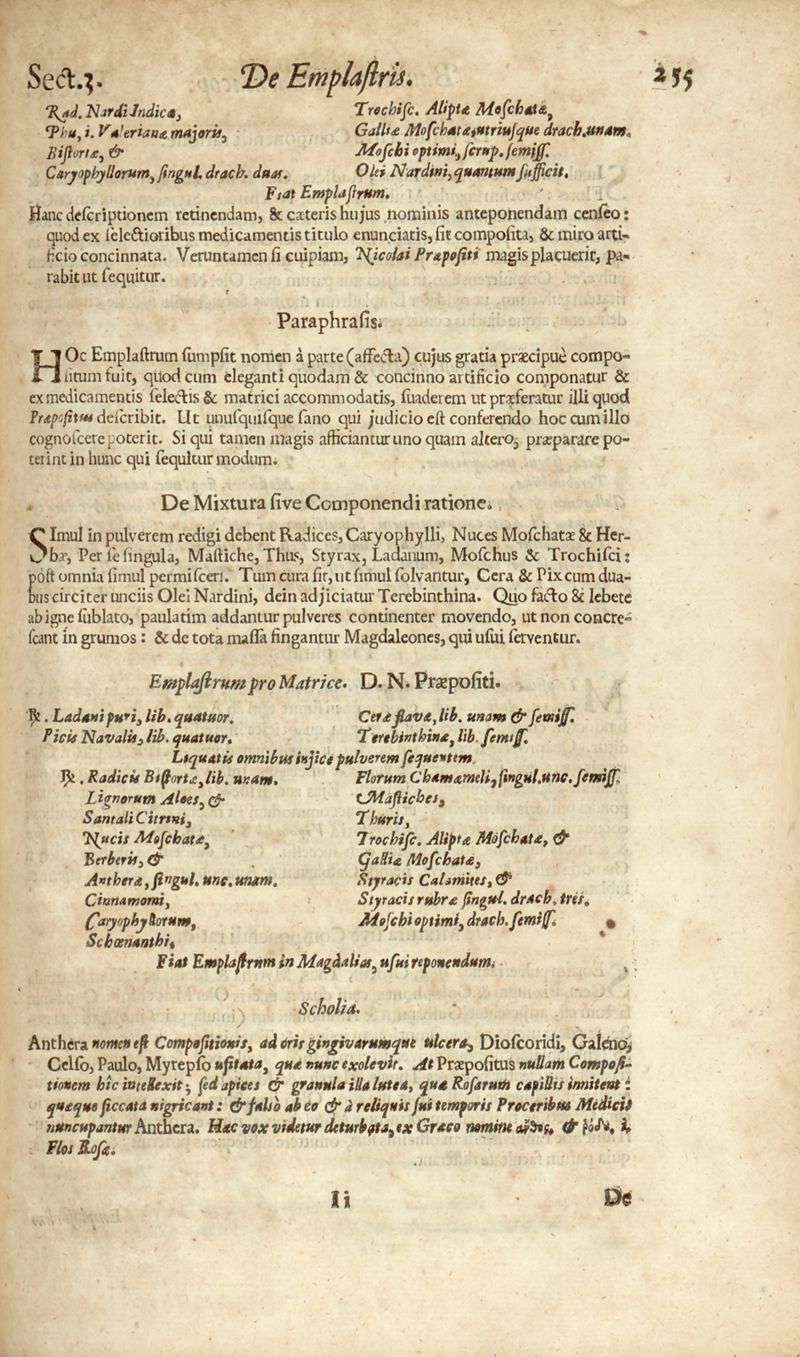 Sect.3. De Emplaſtris. 255
Rad. Nardi Indicæ,
Phu, i. Valerianæ majoris,
Biſtortæ, &
Caryophyllorum, ſingul. drach. duas.
Trochiſc. Aliptæ Moſchatæ,
Galliæ Moſchatæ, utriuſque drach. unam.
Moſchi optimi, ſcrup. ſemiſſ.
Olei Nardini, quantum ſufficit.
Fiat Emplaſtrum.
Hanc deſcriptionem retinendam, & cæteris hujus nominis anteponendam cenſeo:
quod ex ſelectioribus medicamentis titulo enunciatis, ſit compoſita, & miro arti-
ficio concinnata. Veruntamen ſi cuipiam, Nicolai Præpoſiti magis placuerit, pa-
rabit ut ſequitur.
Paraphraſis.
HOc Emplaſtrum ſumpſit nomen à parte (affecta) cujus gratia præcipuè compo-
ſitum fuit, quod cum eleganti quodam & concinno artificio componatur &
ex medicamentis ſelectis & matrici accommodatis, ſuaderem ut præferatur illi quod
Præpoſitus deſcribit. Ut unuſquiſque ſano qui judicio eſt conferendo hoc cum illo
cognoſcere poterit. Si qui tamen magis afficiantur uno quam altero, præparare po-
terint in hunc qui ſequitur modum.
De Mixtura ſive Componendi ratione.
SImul in pulverem redigi debent Radices, Caryophylli, Nuces Moſchatæ & Her-
bæ, Per ſe ſingula, Maſtiche, Thus, Styrax, Ladanum, Moſchus & Trochiſci:
póſt omnia ſimul permiſceri. Tum cura ſit, ut ſimul ſolvantur, Cera & Pix cum dua-
bus circiter unciis Olei Nardini, dein adjiciatur Terebinthina. Quo facto & lebete
ab igne ſublato, paulatim addantur pulveres continenter movendo, ut non concre-
ſcant in grumos: & de tota maſſa fingantur Magdaleones, qui uſui ſerventur.
Emplaſtrum pro Matrice. D. N. Præpoſiti.
℞. Ladani puri, lib. quatuor.
Picis Navalis, lib. quatuor.
Ceræ flavæ, lib. unam & ſemiſſ.
Terebinthinæ, lib. ſemiſſ.
Liquatis omnibus injice pulverem ſequentem.
℞. Radicis Biſtortæ, lib. unam.
Lignorum Aloes, &
Santali Citrini,
Nucis Moſchatæ,
Berberis, &
Antheræ, ſingul. unc. unam.
Cinnamomi,
Caryophyllorum,
Schœnanthi,
Florum Chamæmeli, ſingul. unc. ſemiſſ.
Maſtiches,
Thuris,
Trochiſc. Aliptæ Moſchatæ, &
Galliæ Moſchatæ,
Styracis Calamites, &
Styracis rubræ ſingul. drach. tres.
Moſchi optimi, drach. ſemiſſ.
Fiat Emplaſtrum in Magdalias, uſui reponendum.
Scholia.
Anthera nomen eſt Compoſitionis, ad oris gingivarumque ulcera, Dioſcoridi, Galeno,
Celſo, Paulo, Myrepſo uſitata, quæ nunc exolevit. At Præpoſitus nullam Compoſi-
tionem hîc intellexit; ſed apices & granula illa lutea, quæ Roſarum capillis innitent:
quæque ſiccata nigricant: & falsò ab eo & à reliquis ſui temporis Proceribus Medicis
nuncupantur Anthera. Hæc vox videtur deturbata, ex Græco nomine ἄνθος, & ῥόδε, i,
Flos Roſæ.
Ii De